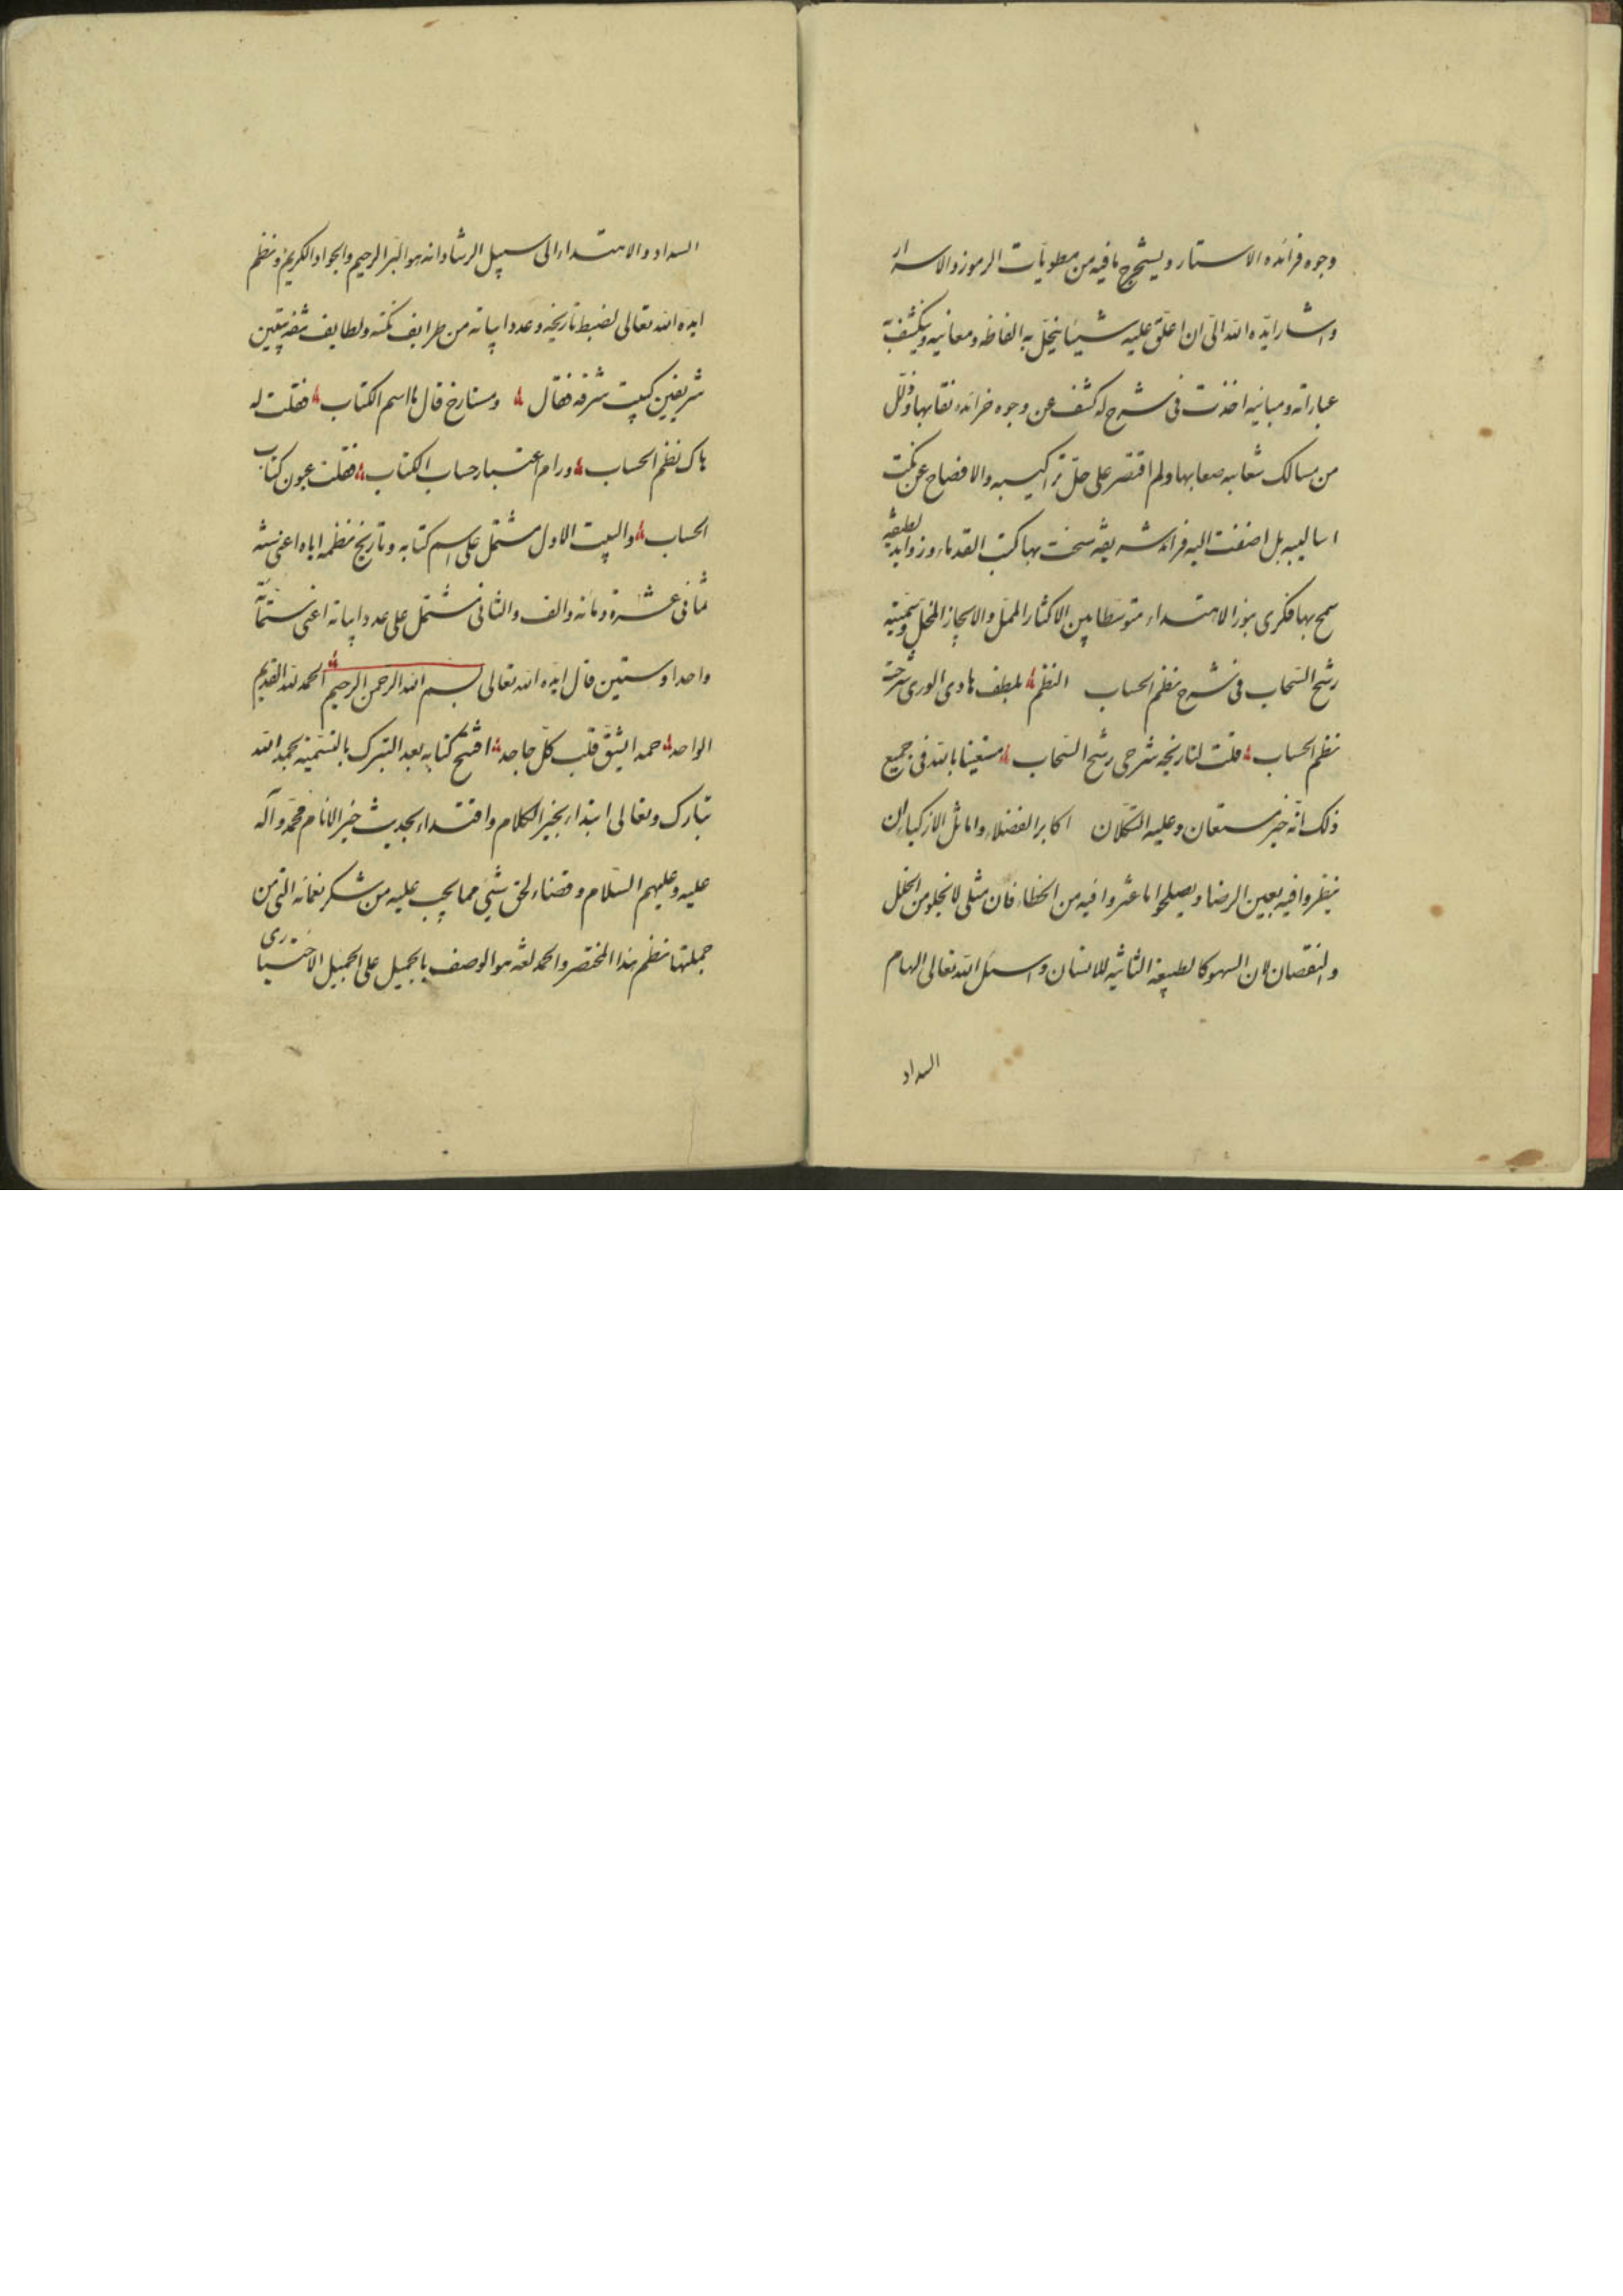 وجوه فرائده الاستار ويستخرج ما فيه من مطويات الرموز والاسرار
واشار ايده الله الى ان اعلق عليه شيئا ينحل به الفاظه ومعانيه وينكشف به
عباراته ومبانيه اخذت فى شرح له كشف عن وجوه خرائده نقابها وذلل
من مسالك شعابه صعابها ولم اقتصر على حل تراكيبه والافصاح عن نكت
اساليبه بل اضفت اليه فرائد شريفة سخت بها كتب القدماء وزوايد لطيفة
سمح بها فكرى بنور الاهتداء متوسطا بين الاكثار الممل والايجاز المخل وسميته
رشح السحاب فى شرح نظم الحساب النظم بلطف هادى الورى شرحت
نظم الحساب قلت لتاريخه شرحى رشح السحاب مستعينا بالله فى جميع
ذلك انه خير مستعان وعليه التكلان اكابر الفضلاء واماثل الازكياء ان
ينظروا فيه بعين الرضا ويصلحوا ما عثروا فيه من الخطاء فان مثلى لا يخلو من الخلل
والنقصان لان السهو كالطبيعة الثانيه للانسان واسئل الله تعالى الهام
السداد
السداد والاهتداء الى سبيل الرشاد انه هو البر الرحيم والجواد الكريم ونظم
ايده الله تعالى لضبط تاريخه وعدد ابياته من طرايف نكته ولطايف بيتين
شريفين كبيت شرفه فقال ومستارخ قال ما اسم الكتاب فقلت له
هاك نظم الحساب ورام اعتبار حساب الكتاب فقلت بجون كتاب
الحساب والبيت الاول مشتمل على اسم كتابه وتاريخ نظمه اياه اعنى سنه
ثمانى عشرة ومائه والف والثانى مشتمل على عدد ابياته اعنى ستمائة
واحدا وستين قال ايده الله تعالى بسم الله الرحمن الرحيم الحمد لله القديم
الواحد حمدا يشق قلب كل جاحد افتتح كتابه بعد التبرك بالتسمية بحمد الله
تبارك وتعالى ابتداء بخير الكلام واقتداء بحديث خير الانام محمد وآله
عليه وعليهم السلام وقضاء لحق شئ مما يجب عليه من شكر نعمائه التى من
جملتها نظم هذا المختصر والحمد لغة هو الوصف بالجميل على الجميل الاختيارى